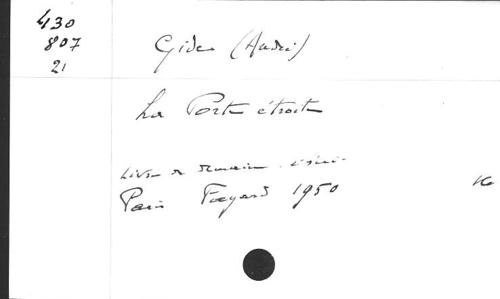 430
807
21
Gide (André)
La Porte étroite
Livre de demain
Paris Fayard 1950